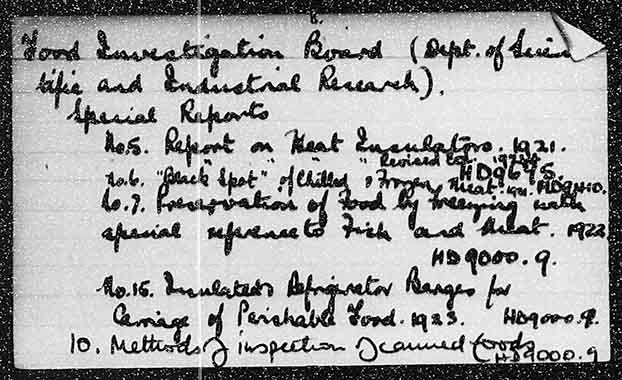 8.
Food Investigation Board (Dept. of Scien
tific and Industrial Research).
Special Reports
No.5. Report on Heat Insulators. 1921.
Revised Ed. HD9695.
No.6. "Black Spot" of Chilled & Frozen Meat. 1921. HD9410.
No.7. Preservation of Food by Freezing with
special reference to Fish and Meat. 1922
HD9000.9.
No.15. Insulated & Refrigerator Barges for
Carriage of Perishable Food. 1923. HD9000.9.
10. Methods of inspection of canned foods
HD9000.9